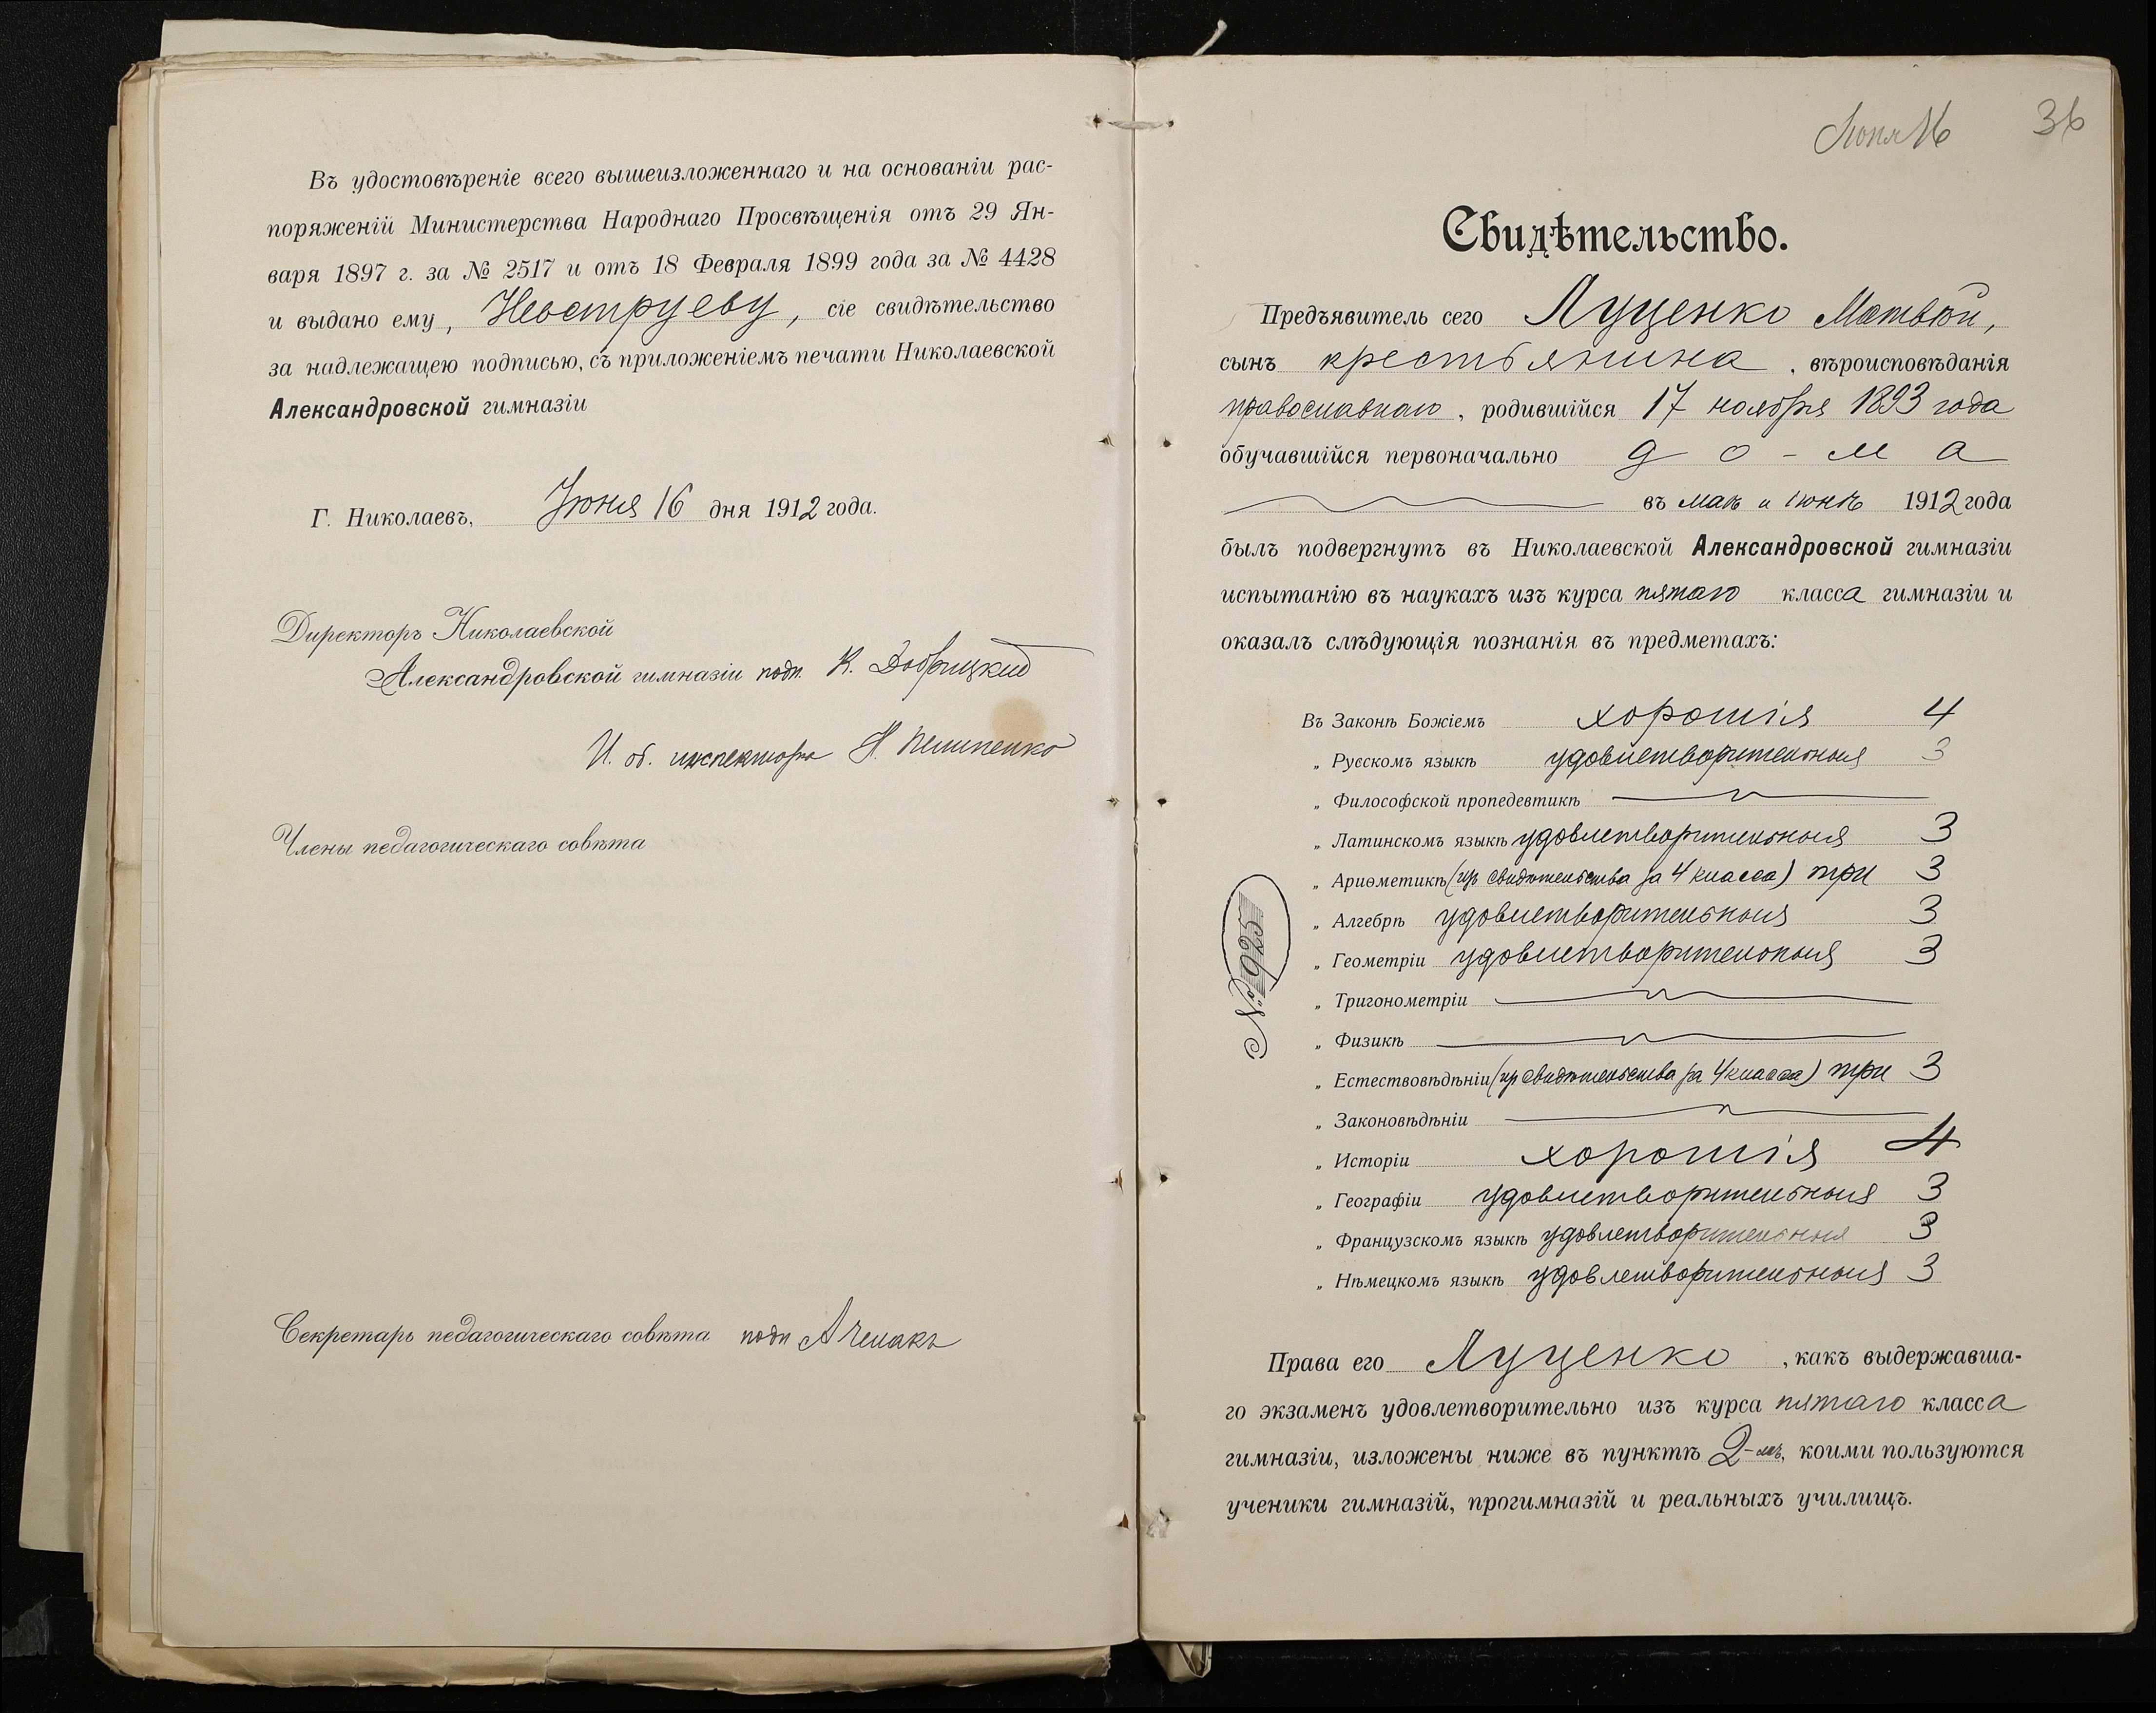 Въ удостовѣреніе всего вышеизложеннаго и на основаніи рас-
поряженій Министерства Народнаго Просвѣщенія отъ 29 Ян-
варя 1897 г. за № 2517 и отъ 18 Февраля 1899 года за № 4428
и выдано ему, Неоструеву, сіе свидѣтельство
за надлежащею подписью, съ приложеніемъ печати Николаевской
Александровской гимназіи
Г. Николаевъ, Іюня 16 дня 1912 года.
Директоръ Николаевской
Александровской гимназіи подп. К. Добрицкій
И. об. инспектора
Члены педагогическаго совѣта
Секретарь педагогическаго совѣта подп
36
Свидѣтельство.
Предъявитель сего Луценко Матвѣй,
сынъ крестьянина, вѣроисповѣданія
православнаго, родившійся 17 ноября 1893 года
обучавшійся первоначально до-ма
въ маѣ и іюнѣ 1912 года
былъ подвергнутъ въ Николаевской Александровской гимназіи
испытанію въ наукахъ изъ курса пятаго класса гимназіи и
оказалъ слѣдующія познанія въ предметахъ:
Въ Законѣ Божіемъ хорошія 4
„ Русскомъ языкѣ удовлетворительныя 3
„ Философской пропедевтикѣ
„ Латинскомъ языкѣ удовлетворительныя 3
„ Ариѳметикѣ (изъ свидѣтельства за 4 класса) три 3
„ Алгебрѣ удовлетворительныя 3
„ Геометріи удовлетворительныя 3
„ Тригонометріи
„ Физикѣ
„ Естествовѣдѣніи (изъ свидѣтельства за 4 класса) три 3
„ Законовѣдѣніи
„ Исторіи хорошія 4
„ Географіи удовлетворительныя 3
„ Французскомъ языкѣ удовлетворительныя 3
„ Нѣмецкомъ языкѣ удовлетворительныя 3
№ 925
Права его Луценко, какъ выдержавша-
го экзаменъ удовлетворительно изъ курса пятаго класса
гимназіи, изложены ниже въ пунктѣ 2-мъ, коими пользуются
ученики гимназій, прогимназій и реальныхъ училищъ.